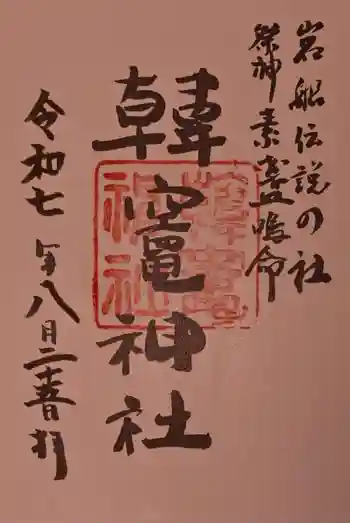 岩船伝説の社
祭神素盞嗚命
韓竈神社
令和七年八月二十五日拝